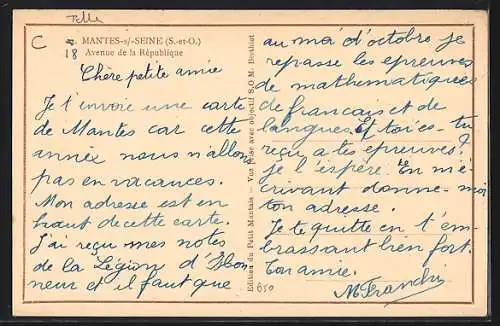 Tlle
C
18
MANTES-s/-SEINE (S.-et-O.)
Avenue de la République
Chère petite amie
Je t'envoie une carte
de Mantes car cette
année nous n'allons
pas en vacances.
Mon adresse est en
haut de cette carte.
J'ai reçu mes notes
de la Légion d'Hon
neur et il faut que
Edition du Petit Mantais — Vue prise avec objectif S.O.M. Berthiot
650
au moi d'octobre je
repasse les épreuves
de mathematiques
de français et de
langues. Et toi es-tu
reçu a tes épreuves?
je l'espère. En m'é-
crivant donne-moi
ton adresse.
Je te quitte en t'em-
brassant bien fort.
Ton amie.